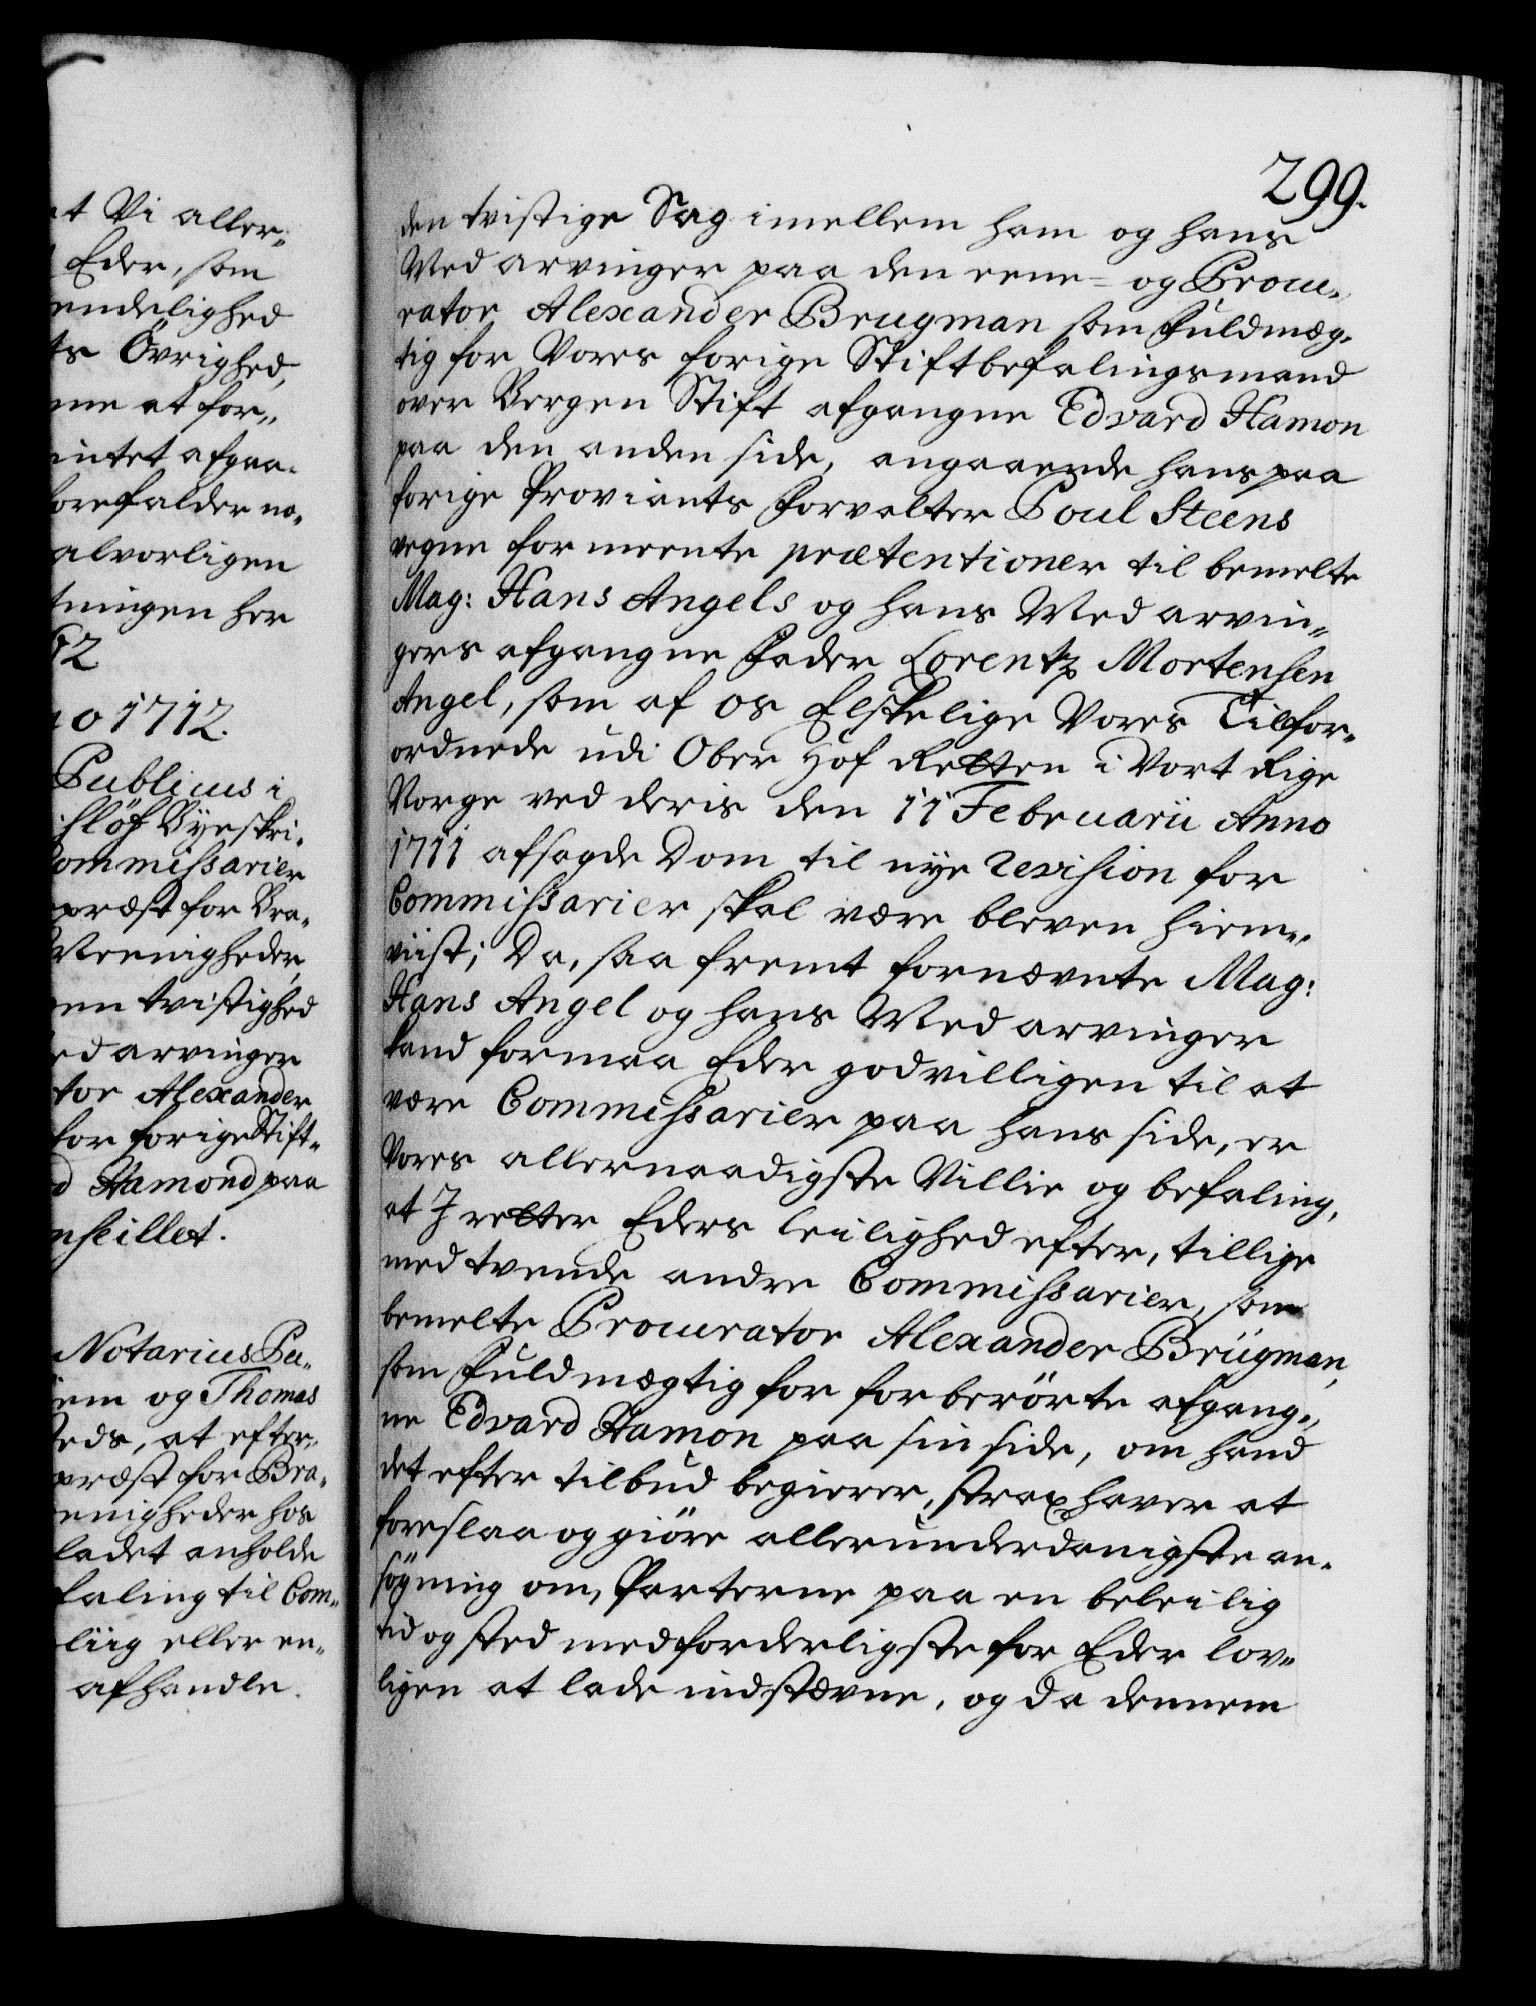 at Vi aller-
Eder, som
endelighed
ts Övrighed,
me at for-
intet afgaa-
forefalder no-
alvorligen
tningen her
62
no 1712.
Publicus i
sløf Byeskri-
Commissarier
præst for Bra-
Meenigheder,
en tvistighed
ed arvinger
tor Alexander
for forige Stift-
d Hamond paa
nseillet.
Notarius Pu-
iem og Thomas
teds, at efter-
præst for Bra-
enigheder hos
ladet anholde
faling til Com-
liig eller en-
afhandle.
299.
den tvistige Sag imellem ham og hans
Med arvinger paa den eene- og Procu-
rator Alexander Brugman som Fuldmæg-
tig for Vores forige Stiftbefalingsmand
over Bergen Stift afgangne Edvard Hamon
paa den anden side, angaaende hans paa
forige Proviants Forvalter Poul Steens
vegne formeente prætentioner til bemelte
Mag: Hans Angels og hans Med arvin-
gers afgangne Fader Lorentz Mortensen
Angel, som af os Elskelige Vores Tilfor-
ordnede udi Ober Hof Retten i Vort Rige
Norge ved deris den 11 Februarii Anno
1711 afsagde Dom til nye revision for
Commissarier skal være bleven hiem-
viist; Da, saa fremt fornævnte Mag:
Hans Angel og hans Med arvinger
kand formaa Eder godvilligen til at
være Commissarier paa hans side, er
Vores allernaadigste Villie og befaling,
at I retter Eders leilighed efter, tillige
med tvende andre Commissarier, som
bemelte Procurator Alexander Brügman,
som Fuldmægtig for forberørte afgang-
ne Edvard Hamon paa sin side, om hand
det efter tilbud begierer, strax haver at
foreslaa og giöre allerunderdanigste an-
søgning om, Parterne paa en beleilig
tid og sted medforderligste for Eder lov-
ligen at lade indstævne, og da dennem